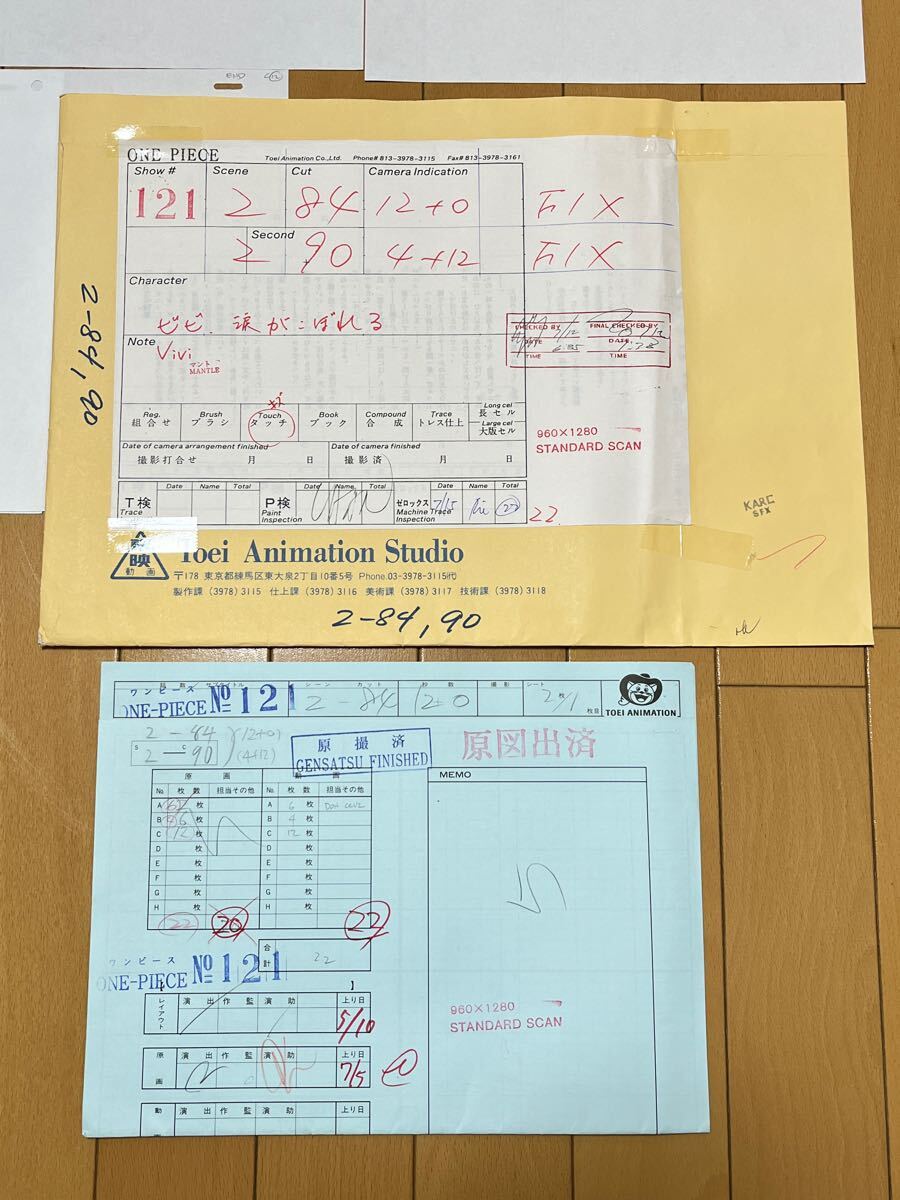 END 12
ONE PIECE Toei Animation Co.,Ltd. Phone# 813-3978-3115 Fax# 813-3978-3161
Show # Scene Cut Camera Indication
121 2 84 12+0 FIX
Second
2 90 4+12 FIX
Character
ビビ、涙がこぼれる
Note
Vivi
マント
MANTLE
CHECKED BY FINAL CHECKED BY
DATE DATE
TIME TIME
Reg. Brush Touch Book Compound Trace Long cel
組合せ ブラシ タッチ ブック 合成 トレス仕上 長セル
Large cel
大版セル
Date of camera arrangement finished Date of camera finished
撮影打合せ 月 日 撮影済 月 日
960×1280
STANDARD SCAN
Date Name Total Date Name Total Date Name Total
T検 P検 ゼロックス 7/15 22
Trace Paint Inspection Machine Trace Inspection
22
2-84, 90
KARE
SFX
東映
動画
Toei Animation Studio
〒178 東京都練馬区東大泉2丁目10番5号 Phone.03-3978-3115(代)
製作課 (3978) 3115 仕上課 (3978) 3116 美術課 (3978) 3117 技術課 (3978) 3118
2-84, 90
ワンピース
ONE-PIECE № 121
シーン カット 秒数 撮影 シート
2-84 12+0
枚目
TOEI ANIMATION
2-84 (12+0)
S C
2-90 (4+12)
原撮済
GENSATSU FINISHED
原図出済
原画 動画
No. 枚数 担当その他 No. 枚数 担当その他
A 枚 A 6 枚
B 枚 B 4 枚
C 12 枚 C 12 枚
D 枚 D 枚
E 枚 E 枚
F 枚 F 枚
G 枚 G 枚
H 枚 H 枚
22 20 22
合計 22
MEMO
ワンピース
ONE-PIECE № 121
レイアウト 演出 作監 演助 上り日
5/10
原画 演出 作監 演助 上り日
7/5
動 演出 作監 演助 上り日
960×1280
STANDARD SCAN